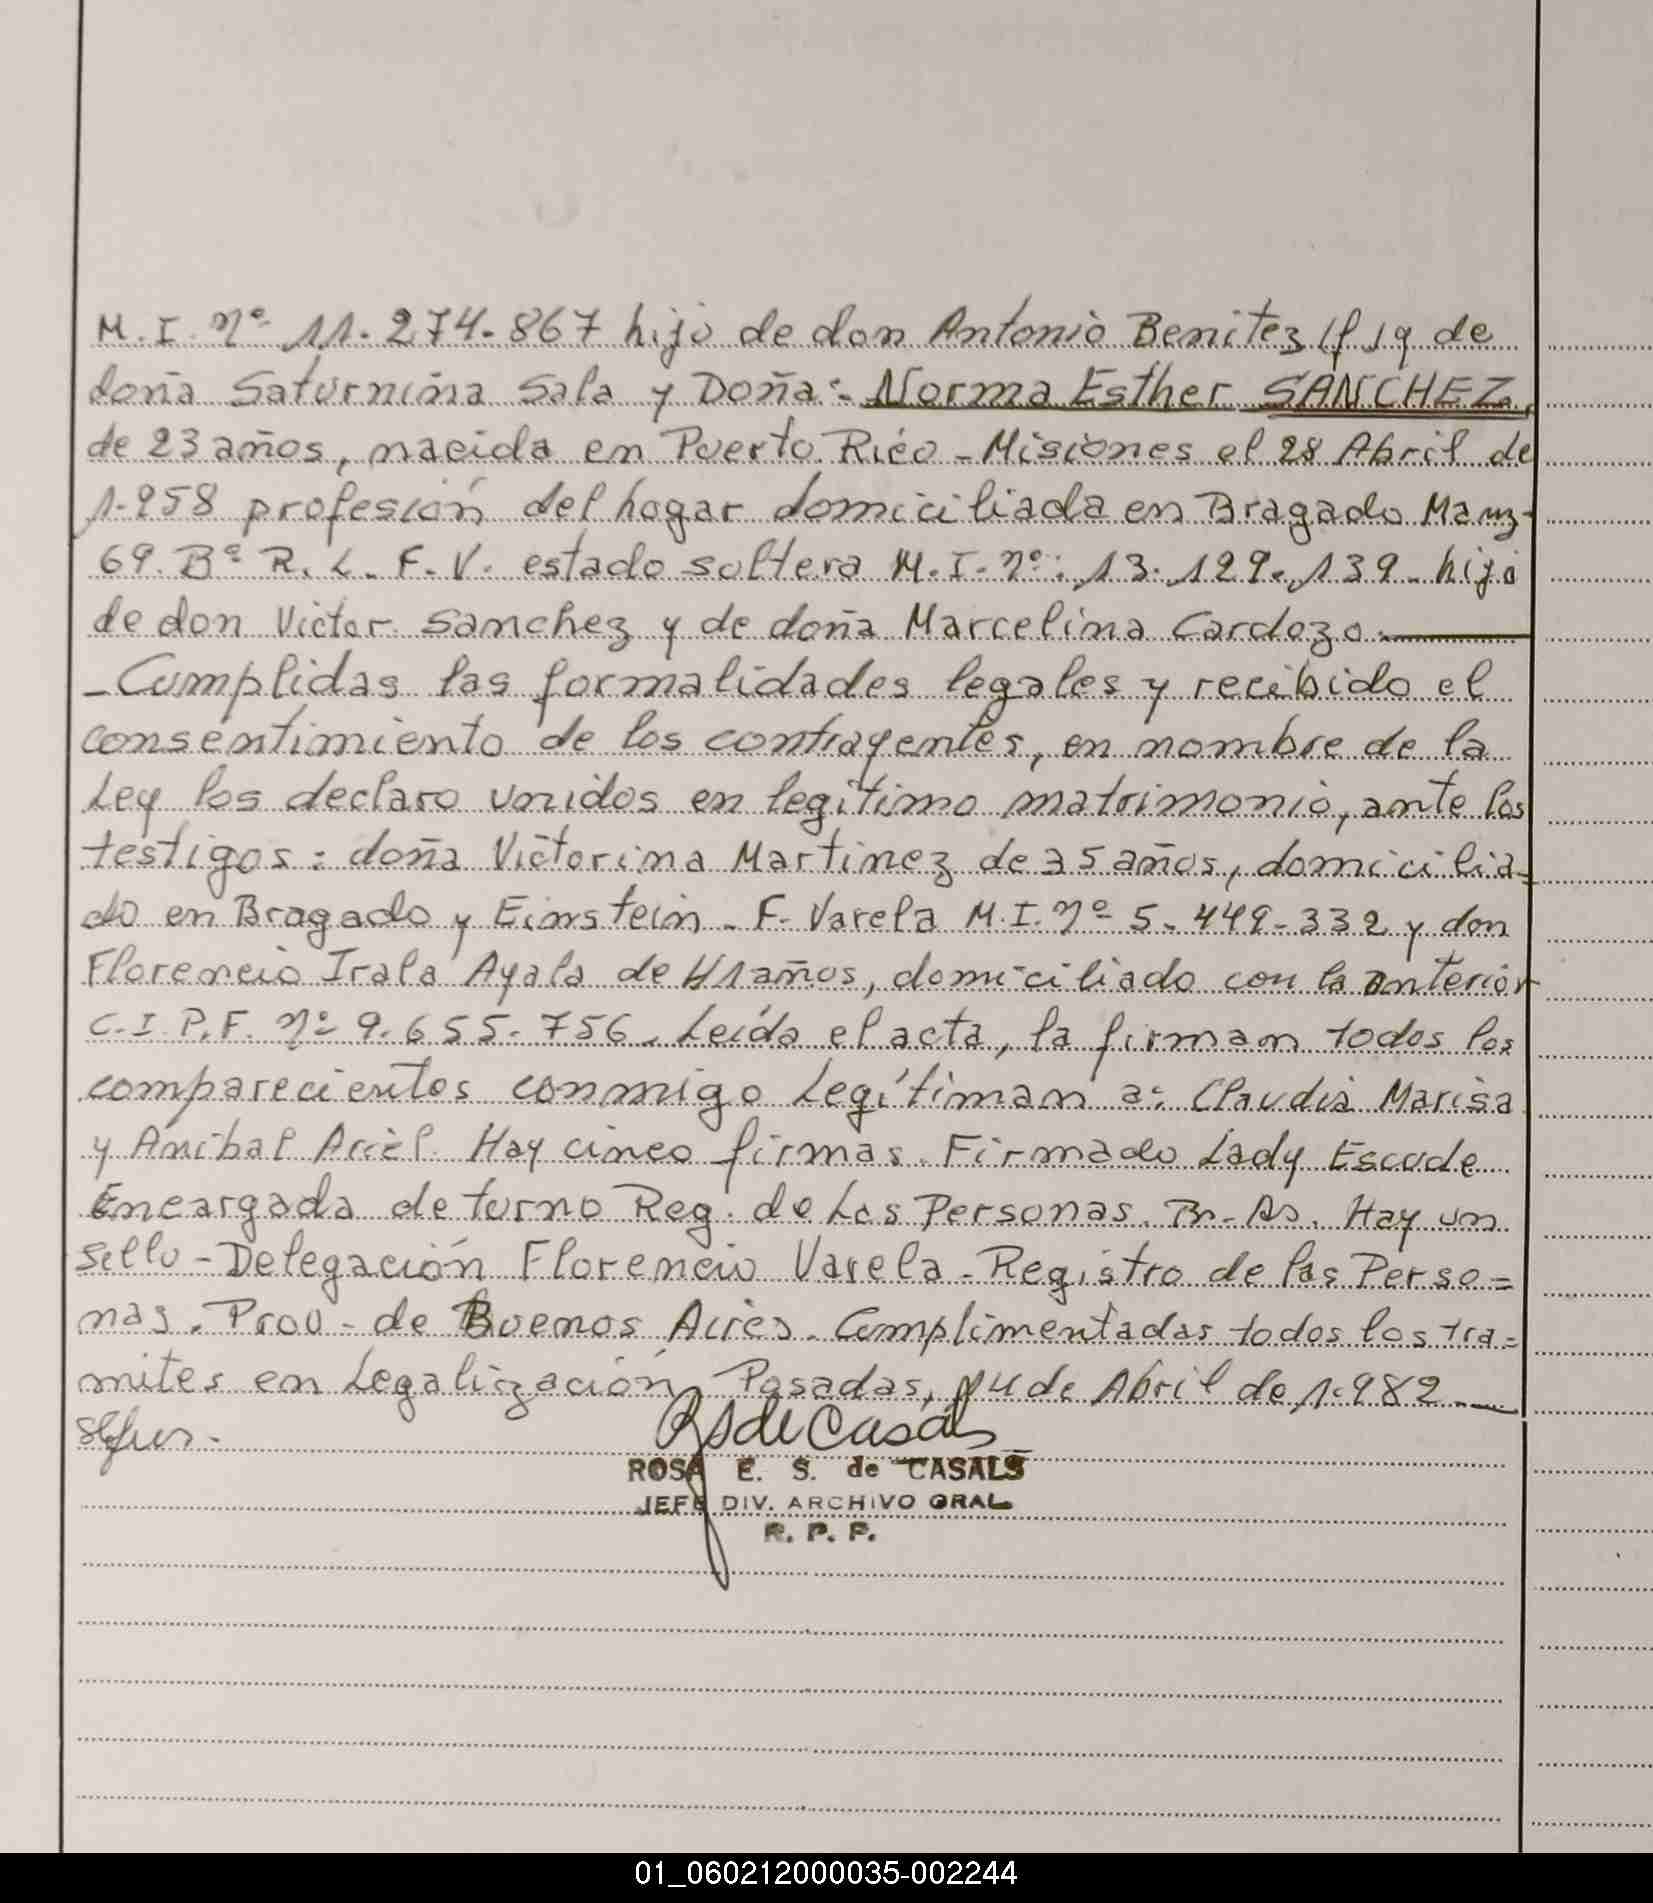 M. I. Nº 11.274.867 hijo de don Antonio Benitez (f) y de
doña Saturnina Sala y Doña: Norma Esther SANCHEZ,
de 23 años, nacida en Puerto Rico - Misiones el 28 Abril de
1.958 profesión del hogar domiciliada en Bragado Manz-
69. Bº R. L. F. V. estado soltera M. I. nº: 13.129.139 - hija
de don Victor Sanchez y de doña Marcelina Cardozo.
- Cumplidas las formalidades legales y recibido el
consentimiento de los contrayentes, en nombre de la
Ley los declaro unidos en legítimo matrimonio, ante los
testigos: doña Victorina Martinez de 35 años, domicilia=
do en Bragado y Einstein - F. Varela M. I. Nº 5.449.332 y don
Florencio Irala Ayala de 41 años, domiciliado con la anterior
C. I. P. F. Nº 9.655.756. Leída el acta, la firman todos los
comparecientes conmigo Legítiman a: Claudia Marisa
y Anibal Ariel. Hay cinco firmas. Firmado Lady Escude
Encargada de turno Reg. de Las Personas. Bs. As. Hay un
sello - Delegación Florencio Varela - Registro de las Perso=
nas. Prov - de Buenos Aires. Cumplimentadas todos los tra=
mites en Legalización Posadas, 14 de Abril de 1.982.
RSdeCasals
ROSA E. S. de CASALS
JEFE DIV. ARCHIVO GRAL
R. P. P.
01_060212000035-002244